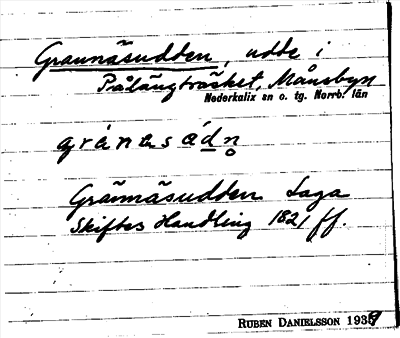 Grannäsudden, udde i
Pålängträsket, Månsbyn
Nederkalix sn o. tg. Norrb. län
gránəsádn̥
Grännäsudden. Laga
Skiftes Handling 1821 ff.
RUBEN DANIELSSON 1939